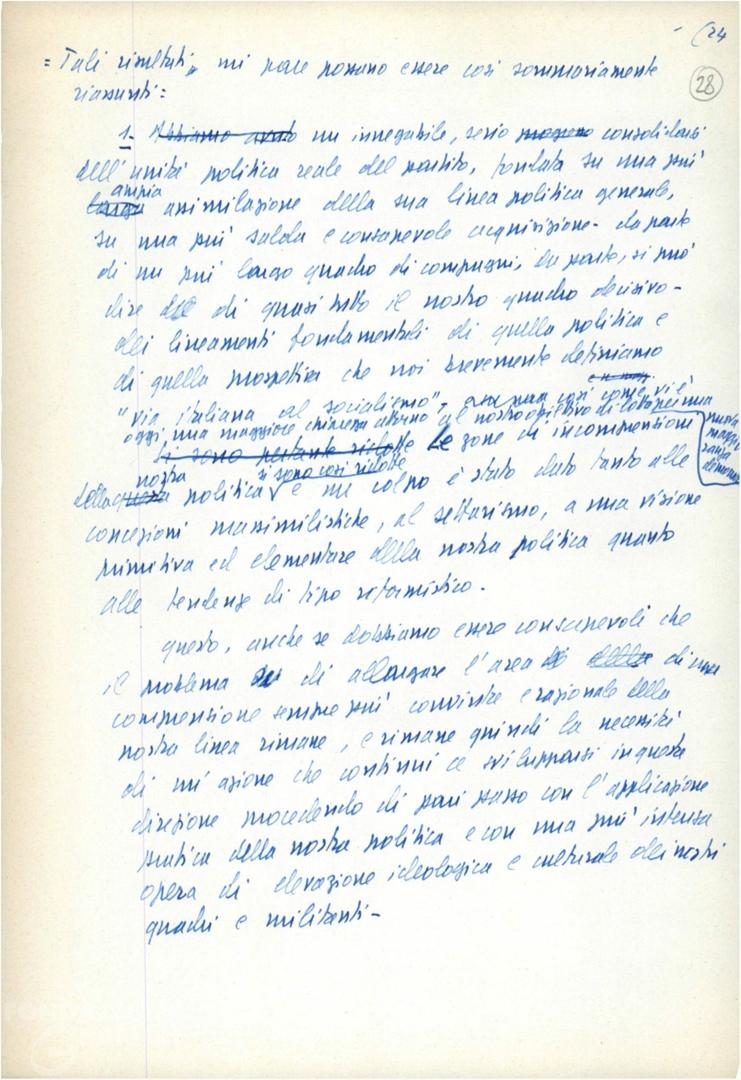 - (24
28
= Tali risultati, mi pare possano essere così sommariamente
riassunti =
1- Abbiamo avuto un innegabile, serio consolidarsi
dell'unità politica reale del partito, fondata su una più
larga ampia assimilazione della sua linea politica generale,
su una più salda e consapevole acquisizione - da parte
di un più largo quadro di compagni, da parte, si può
dire di quasi tutto il nostro quadro decisivo -
dei lineamenti fondamentali di quella politica e
di quella prospettiva che noi brevemente definiamo
"via italiana al socialismo", così come vi è
oggi una maggiore chiarezza attorno al nostro obiettivo di lotta per una
nuova
maggio
ranza
democra
si sono pertanto ridotte Le zone di incomprensione
nostra si sono così ridotte
della questa politica e un colpo è stato dato tanto alle
concezioni massimilistiche, al settarismo, a una visione
primitiva ed elementare della nostra politica quanto
alle tendenze di tipo riformistico.
questo, anche se dobbiamo essere consapevoli che
il problema di allargare l'area della di una
comprensione sempre più convinta e razionale della
nostra linea rimane, e rimane quindi la necessità
di un'azione che continui a svilupparsi in questa
direzione procedendo di pari passo con l'applicazione
pratica della nostra politica e con una più intensa
opera di elevazione ideologica e culturale dei nostri
quadri e militanti -